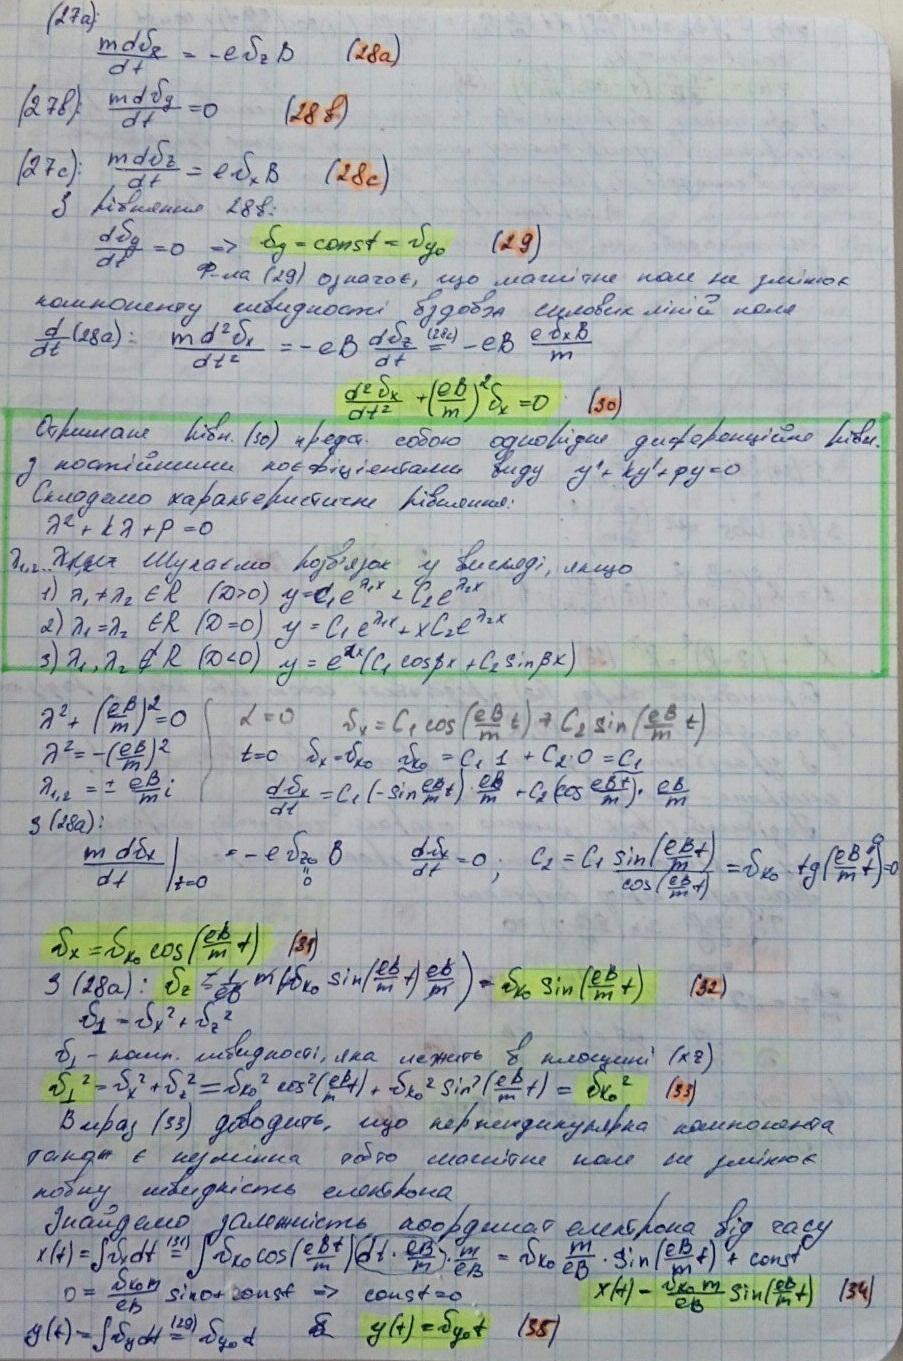 (27a):
m dv_x/dt = -e v_z B (28a)
(27в): m dv_y/dt = 0 (28в)
(27c): m dv_z/dt = e v_x B (28c)
З рівняння 28в:
dv_y/dt = 0 => v_y = const = v_y0 (29)
Ф-ла (29) означає, що магнітне поле не змінює
компоненту швидкості вздовж силових ліній поля
d/dt (28a): m d²v_x/dt² = -eB dv_z/dt (28c)= -eB e v_x B/m
d²v_x/dt² + (eB/m)² v_x = 0 (30)
Отримане рівн. (30) предст. собою однорідне диференційне рівн.
з постійними коефіціентами виду y'' + ky' + py = 0
Складемо характеристичне рівняння:
λ² + kλ + p = 0
λ1,2 Шукаємо розв'язок у вигляді, якщо
1) λ1 ≠ λ2 ∈ R (D>0) y = C1 e^λ1x + C2 e^λ2x
2) λ1 = λ2 ∈ R (D=0) y = C1 e^λ1x + x C2 e^λ2x
3) λ1, λ2 ∉ R (D<0) y = e^αx (C1 cosβx + C2 sinβx)
λ² + (eB/m)² = 0 α = 0 v_x = C1 cos(eB/m t) + C2 sin(eB/m t)
λ² = -(eB/m)² t=0 v_x = v_x0 v_x0 = C1 · 1 + C2 · 0 = C1
λ1,2 = ± eB/m i dv_x/dt = C1 (-sin eB/m t) · eB/m + C2 (cos eBt/m) · eB/m
З (28a):
m dv_x/dt |t=0 = -e v_z0 B dv_x/dt = 0; C2 = C1 sin(eB/m t)/cos(eB/m t) = v_x0 · tg(eB/m t) = 0
" 0
v_x = v_x0 cos(eB/m t) (31)
З (28a): v_z = -1/eB m(-v_x0 sin(eB/m t) eB/m) = v_x0 sin(eB/m t) (32)
v_⊥ = v_x² + v_z²
v_⊥ - комп. швидкості, яка лежить в площині (xz)
v_⊥² = v_x² + v_z² = v_x0² cos²(eB/m t) + v_x0² sin²(eB/m t) = v_x0² (33)
Вираз (33) доводить, що перпендикулярна компонента
також є незмінна тобто магнітне поле не змінює
повну швидкість електрона
Знайдемо залежність координат електрона від часу
x(t) = ∫v_x dt (31)= ∫v_x0 cos(eBt/m) (dt · eB/m) · m/eB = v_x0 m/eB · sin(eB/m t) + const
0 = v_x0 m/eB sin0 + const => const = 0 x(t) = v_x0 m/eB sin(eB/m t) (34)
y(t) = ∫v_y dt (29)= v_y0 t y(t) = v_y0 t (35)